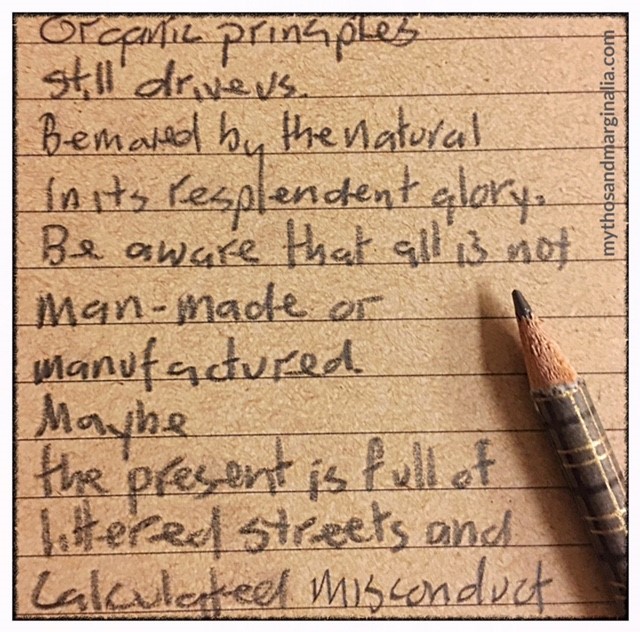 Organic principles
still drive us.
Be moved by the natural
in its resplendent glory.
Be aware that all is not
man-made or
manufactured.
Maybe
the present is full of
littered streets and
calculated misconduct
mythosandmarginalia.com